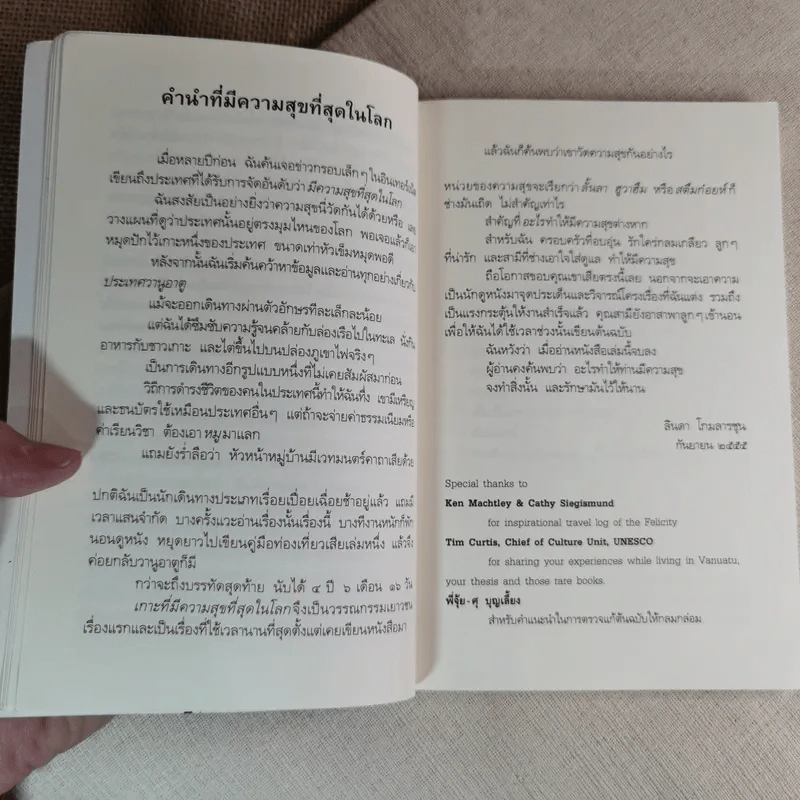 คำนำที่มีความสุขที่สุดในโลก
เมื่อหลายปีก่อน ฉันค้นเจอข่าวกรอบเล็กๆ ในอินเทอร์เน็ต
เขียนถึงประเทศที่ได้รับการจัดอันดับว่า มีความสุขที่สุดในโลก
ฉันสงสัยเป็นอย่างยิ่งว่าความสุขนี่วัดกันได้ด้วยหรือ และ
วางแผนที่ดูว่าประเทศนั้นอยู่ตรงมุมไหนของโลก พอเจอแล้วก็เอา
หมุดปักไว้เกาะหนึ่งของประเทศ ขนาดเท่าหัวเข็มหมุดพอดี
หลังจากนั้นฉันเริ่มค้นคว้าหาข้อมูลและอ่านทุกอย่างเกี่ยวกับ
ประเทศวานูอาตู
แม้จะออกเดินทางผ่านตัวอักษรทีละเล็กละน้อย
แต่ฉันได้ซึมซับความรู้จนคล้ายกับล่องเรือไปในทะเล นั่งกิน
อาหารกับชาวเกาะ และไต่ขึ้นไปบนปล่องภูเขาไฟจริงๆ
เป็นการเดินทางอีกรูปแบบหนึ่งที่ไม่เคยสัมผัสมาก่อน
วิถีการดำรงชีวิตของคนในประเทศนี้ทำให้ฉันทึ่ง เขามีเหรียญ
และธนบัตรใช้เหมือนประเทศอื่นๆ แต่ถ้าจะจ่ายค่าธรรมเนียมหรือ
ค่าเรียนวิชา ต้องเอา หมู มาแลก
แถมยังร่ำลือว่า หัวหน้าหมู่บ้านมีเวทมนตร์คาถาเสียด้วย
ปกติฉันเป็นนักเดินทางประเภทเรื่อยเปื่อยเฉื่อยช้าอยู่แล้ว แถมมี
เวลาแสนจำกัด บางครั้งแวะอ่านเรื่องนั้นเรื่องนี้ บางทีงานหนักก็พัก
นอนดูหนัง หยุดยาวไปเขียนคู่มือท่องเที่ยวเสียเล่มหนึ่ง แล้วจึง
ค่อยกลับวานูอาตูก็มี
กว่าจะถึงบรรทัดสุดท้าย นับได้ ๔ ปี ๖ เดือน ๑๖ วัน
เกาะที่มีความสุขที่สุดในโลก จึงเป็นวรรณกรรมเยาวชน
เรื่องแรกและเป็นเรื่องที่ใช้เวลานานที่สุดตั้งแต่เคยเขียนหนังสือมา
แล้วฉันก็ค้นพบว่าเขาวัดความสุขกันอย่างไร
หน่วยของความสุขจะเรียกว่า ลั้นลา ฮูวาฮึม หรือ สตึมก่อยห์ ก็
ช่างมันเถิด ไม่สำคัญเท่าไร
สำคัญที่ อะไรทำให้มีความสุขต่างหาก
สำหรับฉัน ครอบครัวที่อบอุ่น รักใคร่กลมเกลียว ลูกๆ
ที่น่ารัก และสามีที่ช่างเอาใจใส่ดูแล ทำให้มีความสุข
ถือโอกาสขอบคุณเขาเสียตรงนี้เลย นอกจากจะเอาความ
เป็นนักดูหนังมาจุดประเด็นและวิจารณ์โครงเรื่องที่ฉันแต่ง รวมถึง
เป็นแรงกระตุ้นให้งานสำเร็จแล้ว คุณสามียังอาสาพาลูกๆ เข้านอน
เพื่อให้ฉันได้ใช้เวลาช่วงนั้นเขียนต้นฉบับ
ฉันหวังว่า เมื่ออ่านหนังสือเล่มนี้จบลง
ผู้อ่านคงค้นพบว่า อะไรทำให้ท่านมีความสุข
จงทำสิ่งนั้น และรักษามันไว้ให้นาน
ลินดา โกมลารชุน
กันยายน ๒๕๕๕
Special thanks to
Ken Machtley & Cathy Siegismund
for inspirational travel log of the Felicity
Tim Curtis, Chief of Culture Unit, UNESCO
for sharing your experiences while living in Vanuatu,
your thesis and those rare books.
พี่จุ้ย-ศุ บุญเลี้ยง
สำหรับคำแนะนำในการตรวจแก้ต้นฉบับให้กลมกล่อม